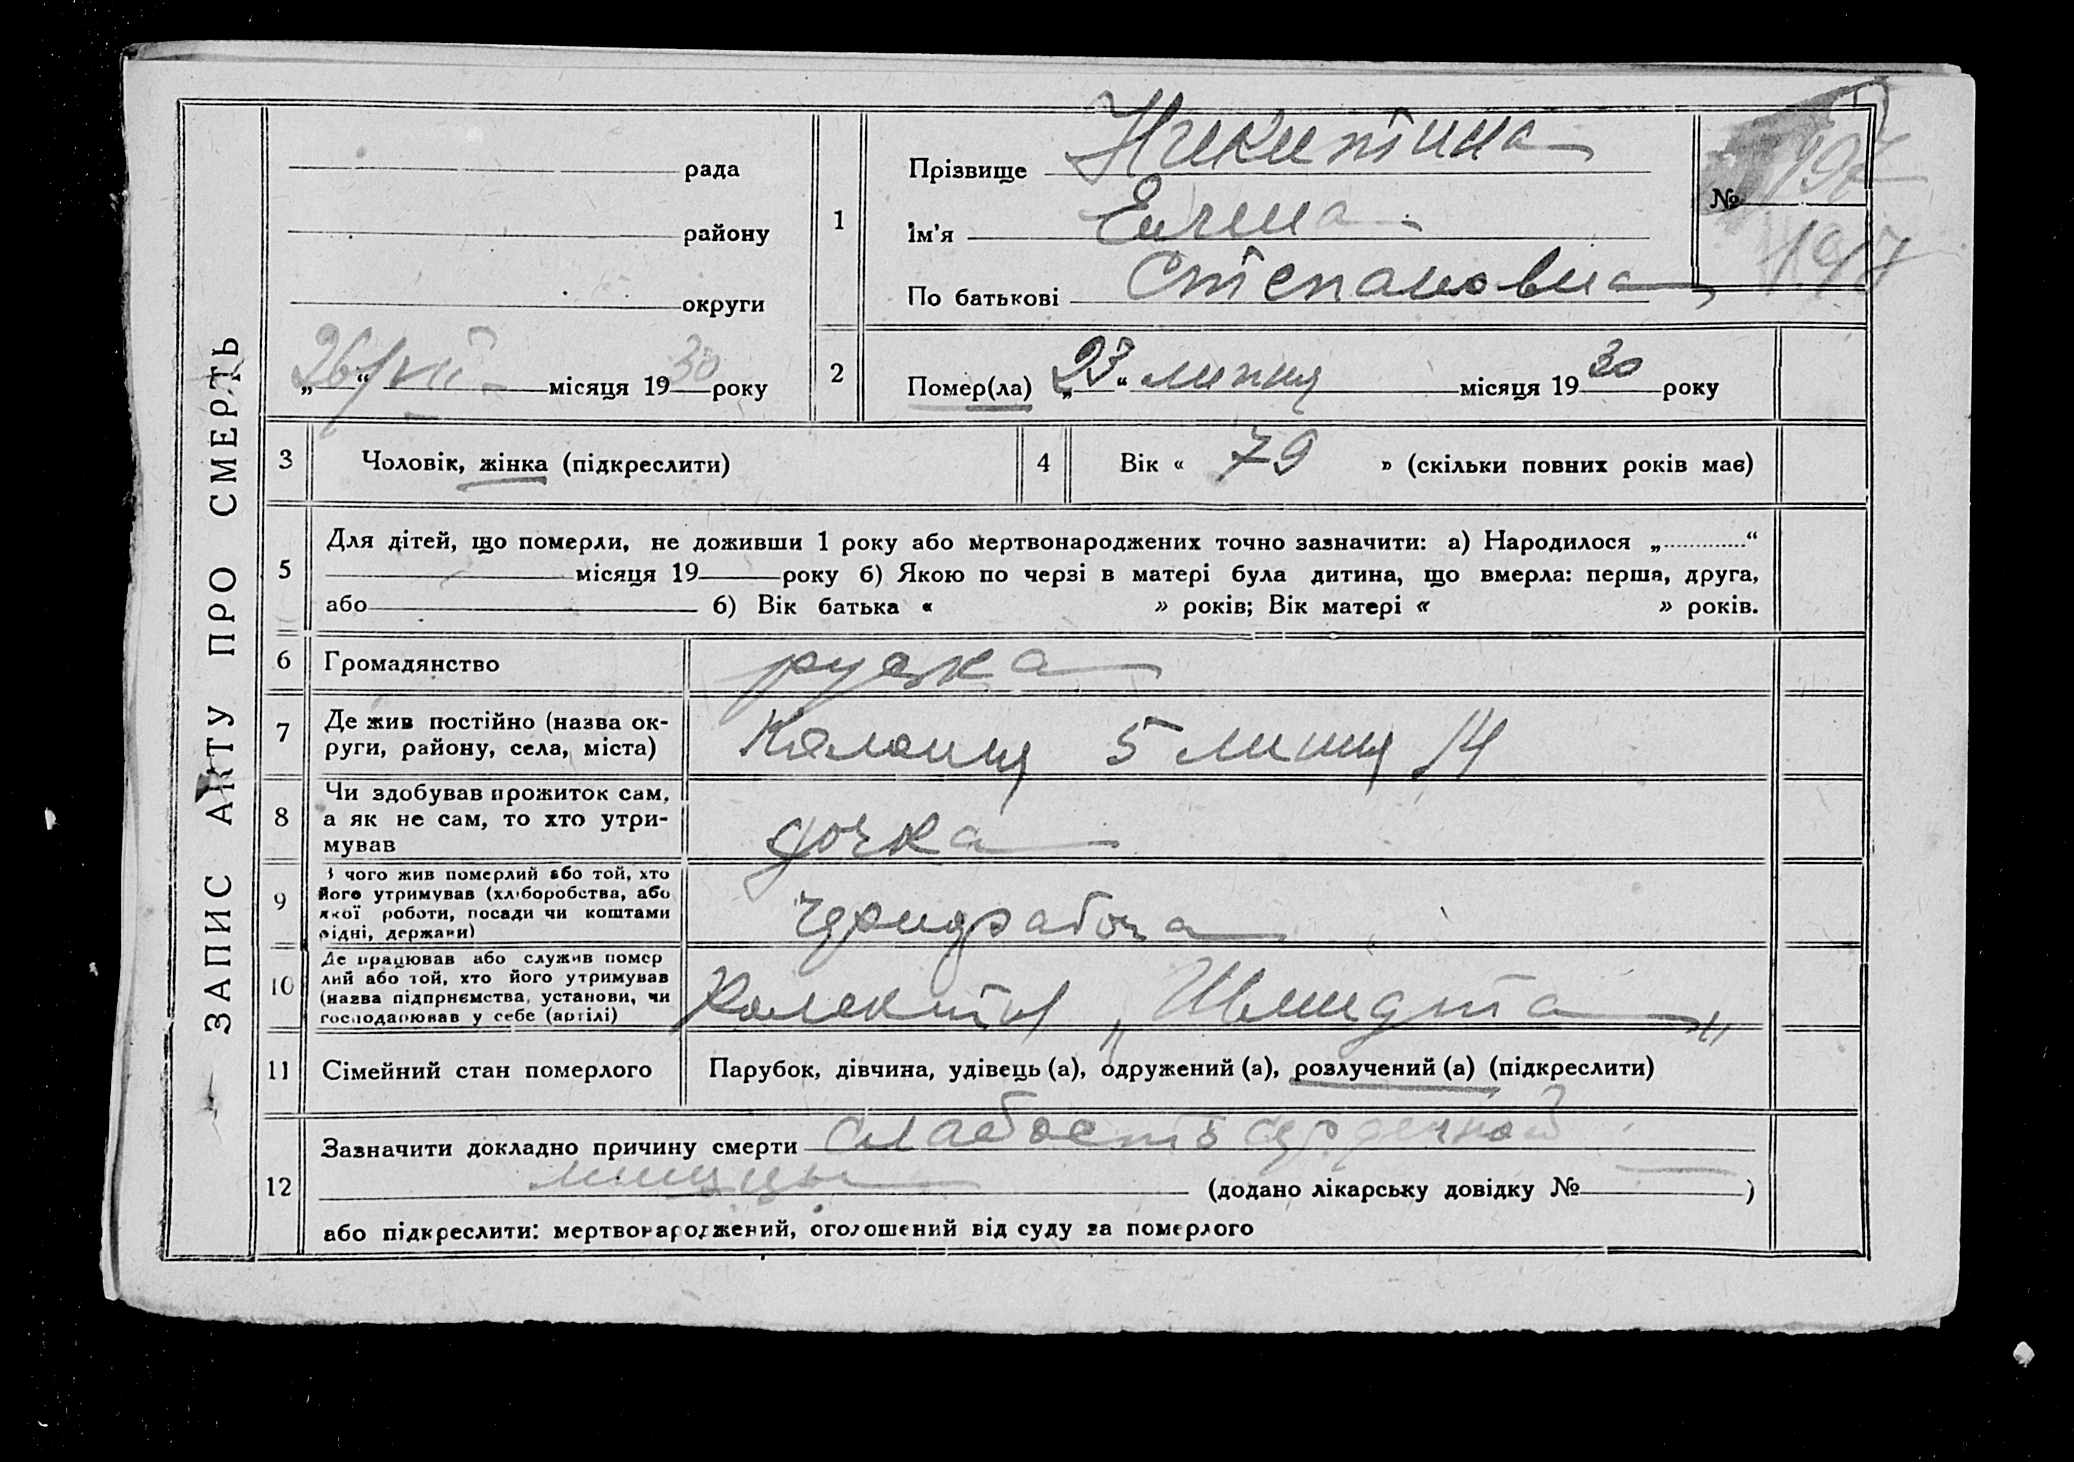 ЗАПИС АКТУ ПРО СМЕРТЬ
рада
району
округи
„26/VII“ місяця 1930 року
1
Прізвище Никитина
Ім'я
По батькові Степановна
№ 197
197
2
Помер(ла) „23“ липня місяця 1930 року
3
Чоловік, жінка (підкреслити)
4
Вік « 79 » (скільки повних років мав)
5
Для дітей, що померли, не доживши 1 року або мертвонароджених точно зазначити: а) Народилося „ “
місяця 19 року б) Якою по черзі в матері була дитина, що вмерла: перша, друга,
або б) Вік батька « » років; Вік матері « » років.
6
Громадянство руська
7
Де жив постійно (назва ок-
руги, району, села, міста)
5 линия 14
8
Чи здобував прожиток сам,
а як не сам, то хто утри-
мував
дочка
9
З чого жив померлий або той, хто
його утримував (хліборобства, або
якої роботи, посади чи коштами
рідні, держави)
10
Де працював або служив помер
лий або той, хто його утримував
(назва підприємства, установи, чи
господарював у себе (артілі)
Колектив „Шмидта„
11
Сімейний стан померлого
Парубок, дівчина, удівець (а), одружений (а), розлучений (а) (підкреслити)
12
Зазначити докладно причину смерти слабость сердечной
мышцы (додано лікарську довідку № )
або підкреслити: мертвонароджений, оголошений від суду за померлого